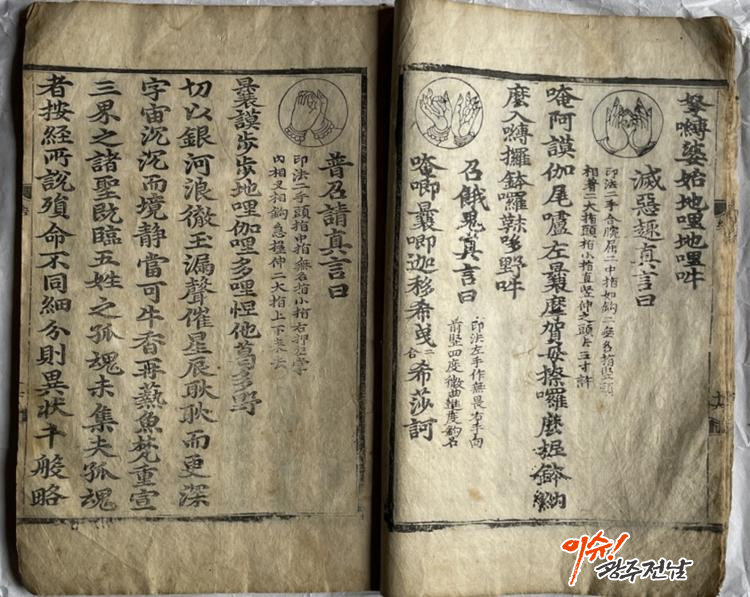 拏嚩婆始地哩地哩吽
滅惡趣真言曰
印法二手合腕屈二中指如鉤二無名指竪頭
相著二大指頭指小指直竪伸之頭去三寸許
唵阿謨伽尾嚧左曩麽賀毋捺囉麽抳鉢納
麽入嚩攞鉢囉韈哆野吽
召餓鬼真言曰
印法左手作無畏右手向
前竪四度微曲進度鉤召
唵唧曩唧迦移希曵二合希莎訶
普召請真言曰
印法二手頭指中指無名指小指右押左
內相叉相鉤急握伸二大指上下來去
曩謨步步地哩伽哩多哩怛他葛多野
切以銀河浪徹玉漏聲催星辰耿耿而更深
宇宙沉沉而境静當可牛香再爇魚梵重宣
三界之諸聖既臨五姓之孤魂未集夫孤魂
者按經所説殞命不同細分則異狀千般略
이슈!
광주전남